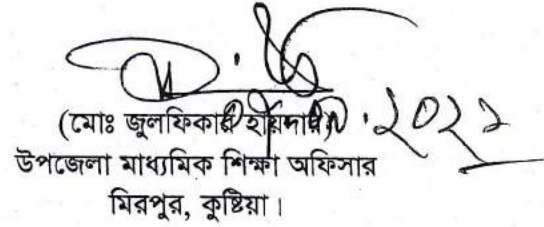 (মোঃ জুলফিকার হায়দার)
উপজেলা মাধ্যমিক শিক্ষা অফিসার
মিরপুর, কুষ্টিয়া।